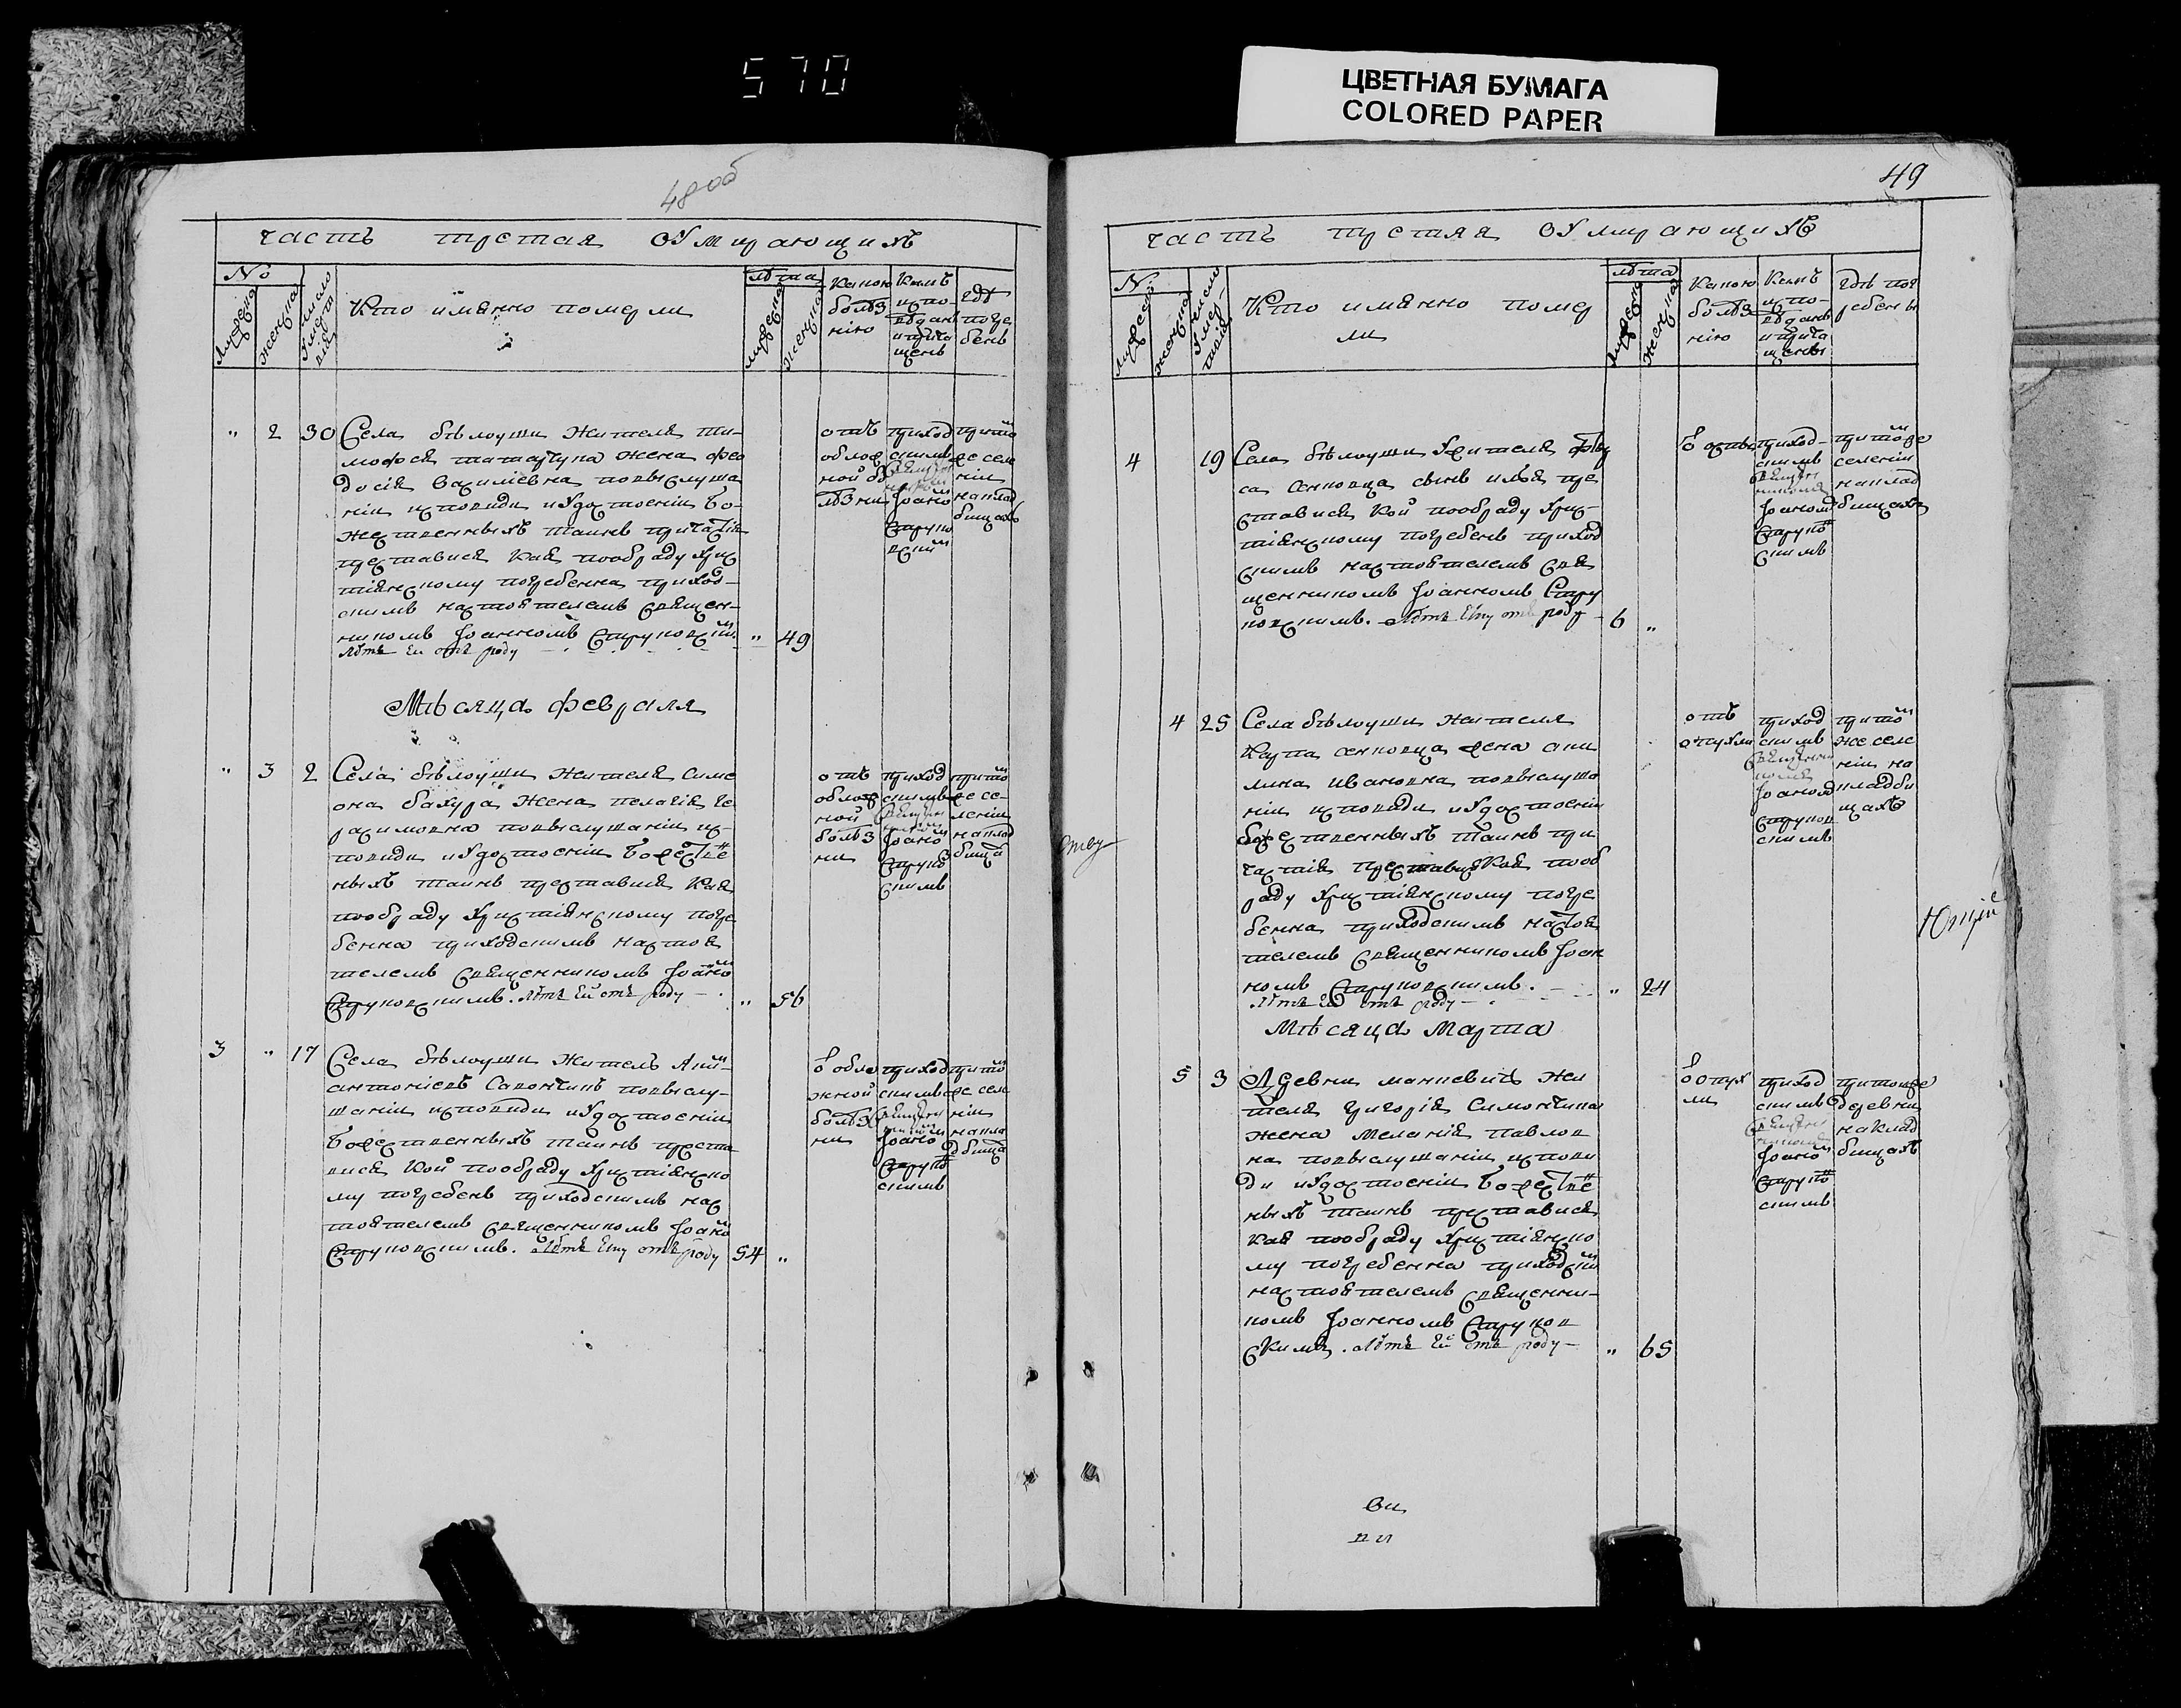 570
ЦВЕТНАЯ БУМАГА
COLORED PAPER
48об
часть третая оумирающихъ
№
мужеска
женска
число умертвія
Кто имянно померли
лѣта
мужеска
женска
Какою болѣзнію
Кемъ исповѣданъ и прича щенъ
гдѣ погребенъ
" 2 30
Села бѣлоуши жителя ти-
мофея жена фео
досія Василіевна повыслуша
ніи исповиди иУдостоеніи Бо-
жественныхъ таинъ причастія
преставися Кая пообряду хрис
тіянскому погребенна приход-
скимъ настоятелемъ Священ-
никомъ Іоанномъ Струковским
лѣтъ ей отъ роду " 49
отъ
облож
ной бо
лѣзни
приход
скимъ
Іоано
Струко
вским
при то
же селе
ніи
на клад
бищахъ
Мѣсяца февраля
" 3 2
Села бѣлоуши жителя Симе
она бахура жена пелагія Ге
расимовна повыслушаніи ис-
повиди иУдостоеніи Божестве
ныхъ таинъ преставися Кая
пообряду христіянскому погре
бенна приходскимъ настоя
телемъ Священникомъ Іоано
Струковскимъ. лѣтъ ей отъ роду " 56
отъ
облож
ной
болѣз
ни
приход
скимъ
Іоано
Струко
скимъ
при то
же се-
леніи
на клад
бища
3 " 17
Села бѣлоуши житель
антоніевъ повыслу-
шаніи исповиди иУдостоеніи
Божественныхъ таинъ преста
вися Кой пообряду христіянско
му погребенъ приходскимъ нас
тоятелемъ священникомъ Іоано
Струковскимъ. лѣтъ ему отъ роду 54 "
обло
жной
болѣз
ни
приход
скимъ
Іоано
Струко
скимъ
при то
же селе
ніи
на кла
дбища
49
часть третяя оумирающихъ
№
мужеска
женска
число умертвія
Кто имянно помер
ли
лѣта
мужеска
женска
Какою болѣзнію
Кемъ исповѣданъ и прича щены
гдѣ погребены
4 19
Села бѣлоуши жителя
са сенковца сынъ илья пре
ставися Кой пообряду хрис-
тіянскому погребенъ приход
скимъ настоятелемъ свя
щенникомъ Іоанномъ Стру
ковскимъ. лѣтъ ему отъ роду 6 "
приход-
скимъ
Іоаном
Струко
скимъ
при томже
селеніи
на клад
бищахъ
4 25
Села бѣлоуши жителя
Карпа сенковца жена аки
лина Ивановна повыслуша
ніи исповиди иУдостоеніи
божественныхъ таинъ при
частія преставися Кая пооб
ряду христіянскому погре
бенна приходскимъ настоя
телемъ священникомъ Іоан
номъ Струковскимъ.
лѣтъ ей отъ роду " 24
отъ
опухли
приход
скимъ
Іоаном
Струков
скимъ
при том
же селе
ніи на
кладби
щахъ
Мѣсяца Марта
5 3
Деревни манкевичъ жи
теля григорія Симончика
жена Меланія павлов
на повыслушаніи испови
ди иУдостоеніи Божестве
ныхъ таинъ преставися
кая пообряду христіянско
му погребенна приходским
настоятелемъ Священни-
комъ Іоанномъ Струков
Скимъ. лѣтъ ей отъ роду " 65
опух
ли
приход
скимъ
Іоано
Струко
скимъ
при томже
деревни
на клад
бищахъ